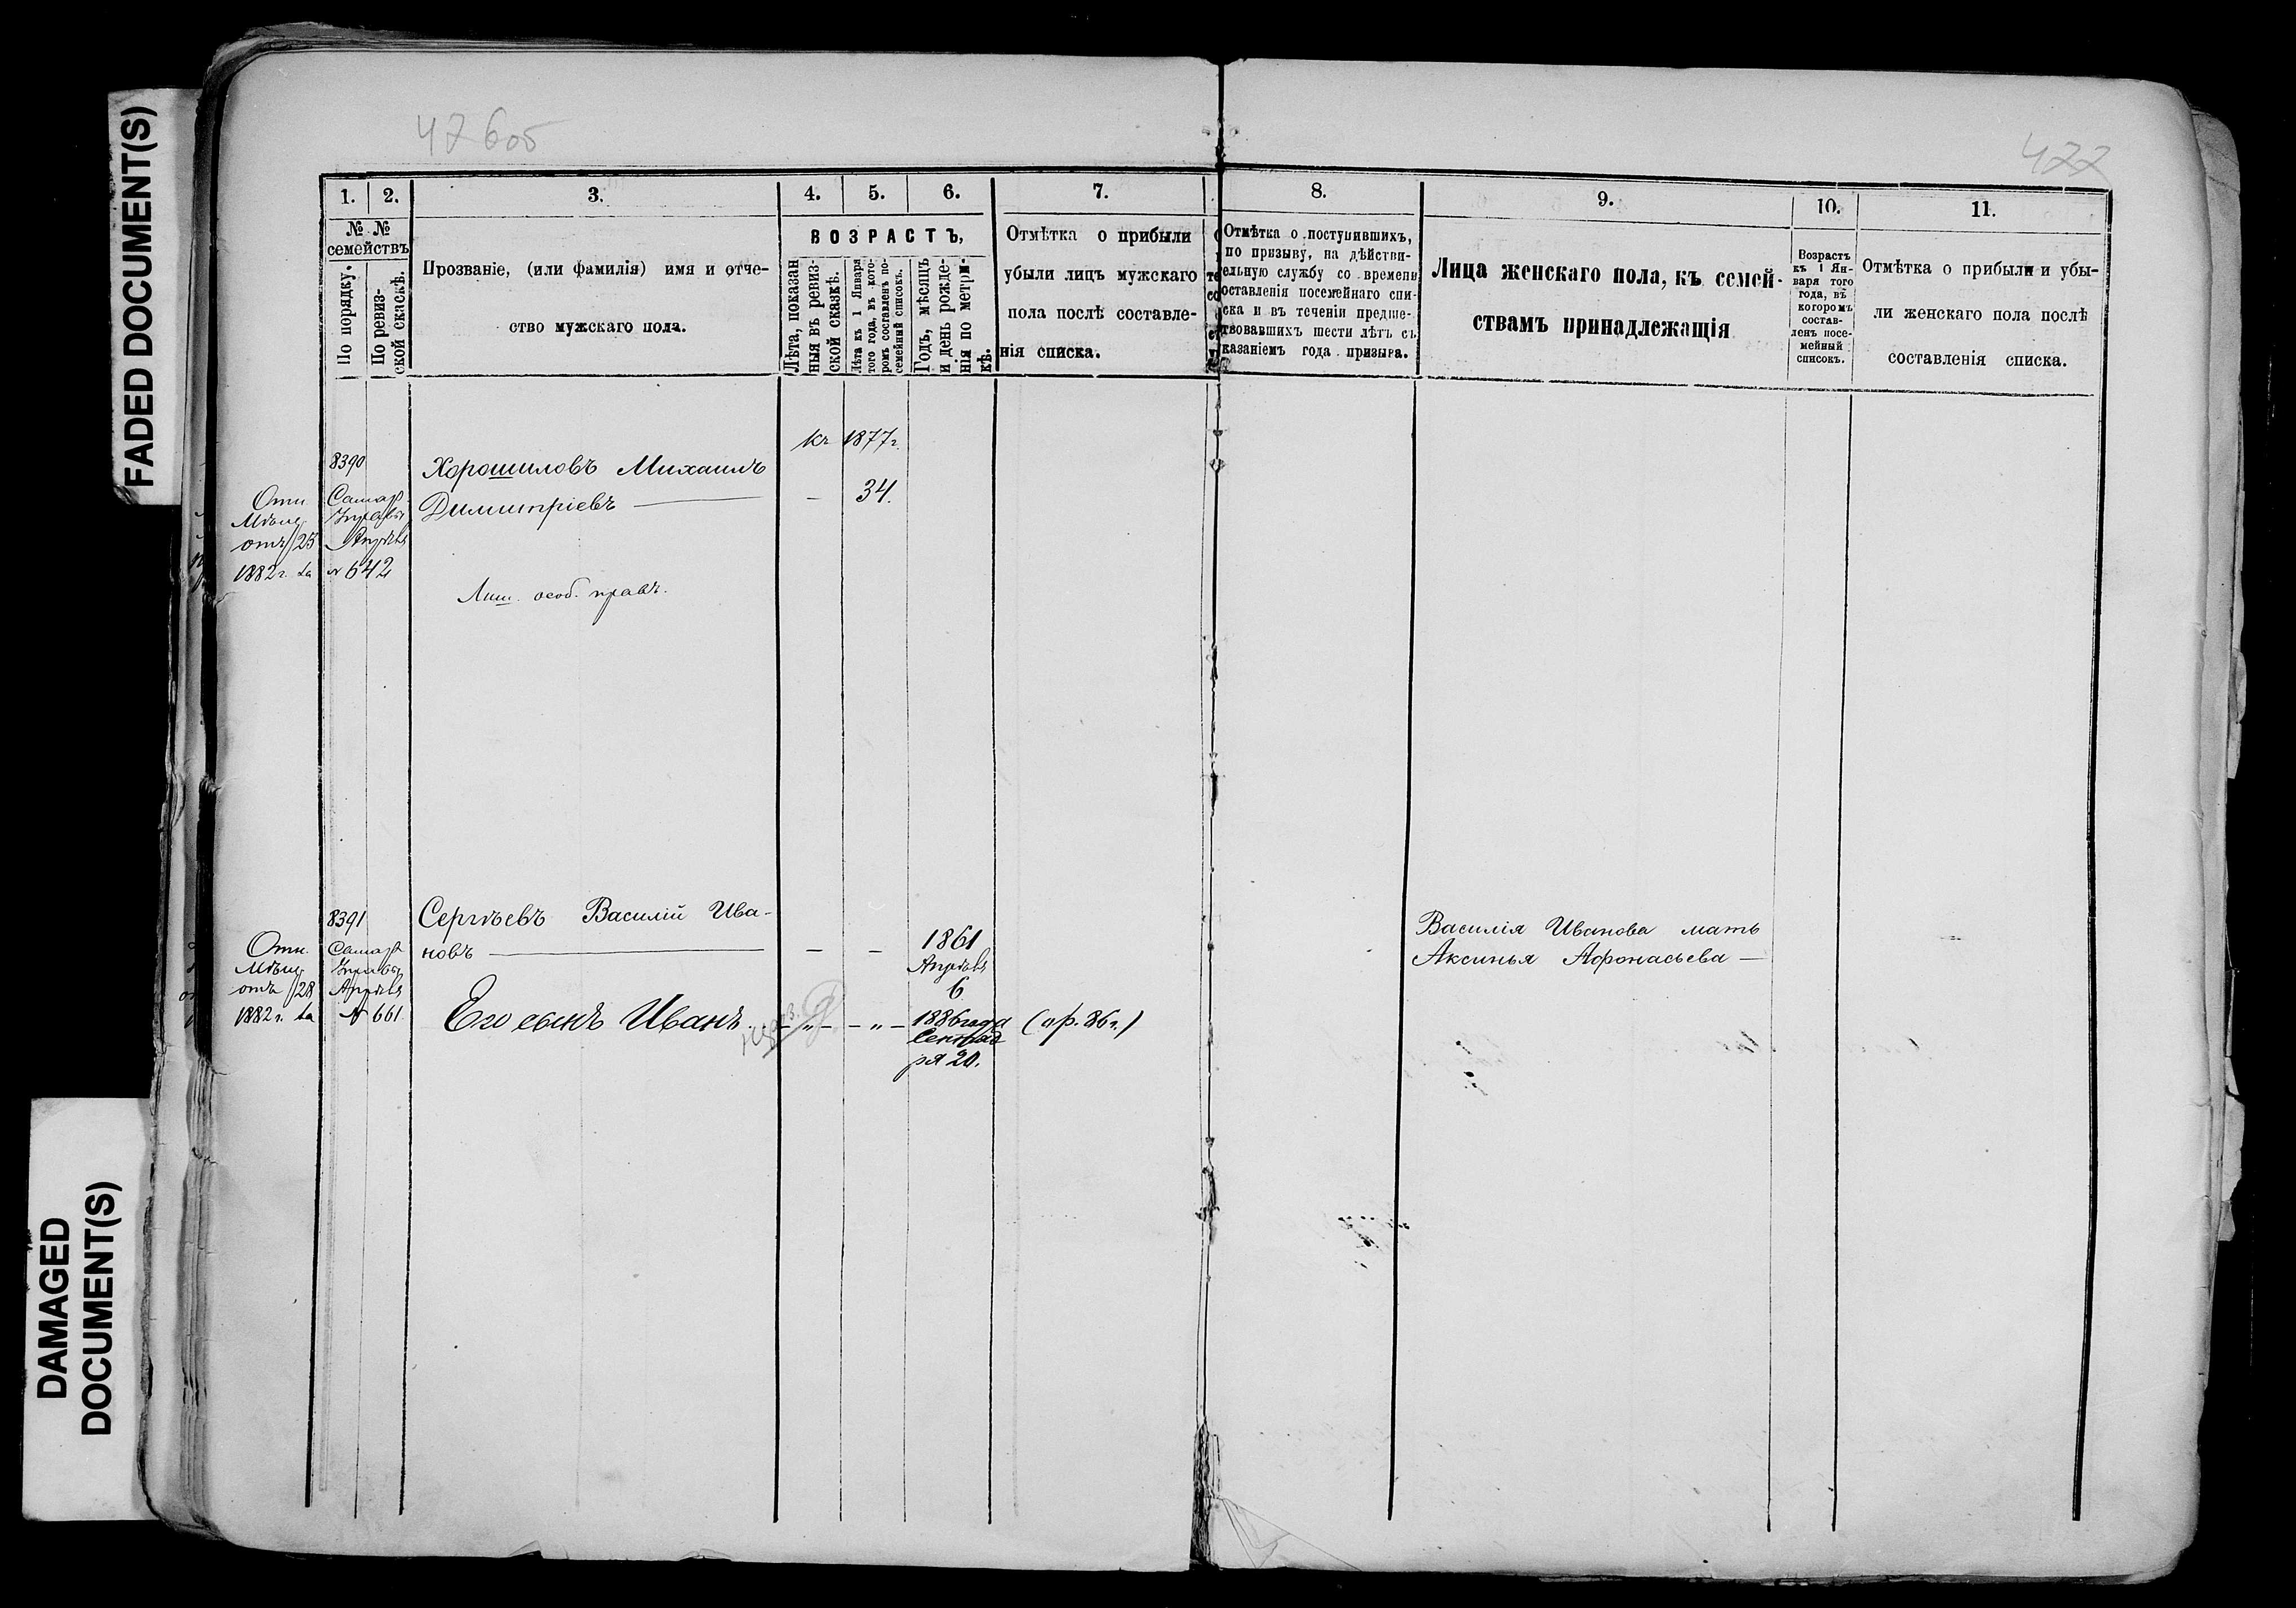 FADED DOCUMENT(S)
DAMAGED
DOCUMENT(S)
47605
477
1.
2.
3.
4.
5.
6.
7.
8.
9.
10.
11.
№ №
семействъ
По порядку.
По ревиз-
ской скаскѣ.
Прозваніе, (или фамилія) имя и отче-
ство мужскаго пола.
ВОЗРАСТЪ,
Лѣта, показан
ныя въ ревиз-
ской сказкѣ.
Лѣта къ 1 Января
того года, въ кото-
ромъ составленъ по-
семейный списокъ.
Годъ, мѣсяцъ
и день рожде-
нія по метри-
кѣ.
Отмѣтка о прибыли
убыли лицъ мужскаго
пола послѣ составле-
нія списка.
Отмѣтка о поступившихъ,
по призыву, на дѣйстви-
ельную службу со времени
оставленія посемейнаго спи-
ска и въ теченіи предше-
твовавшихъ шести лѣтъ съ
казаніемъ года призыва.
Лица женскаго пола, къ семей-
ствамъ принадлежащія
Возрастъ
къ 1 Ян-
варя того
года, въ
которомъ
состав-
ленъ посе-
мейный
списокъ.
Отмѣтка о прибыли и убы-
ли женскаго пола послѣ
составленія списка.
къ 1877г.
8390
Хорошиловъ Михаилъ
Димитріевъ — 34.
Отн. Самар.
Мѣщ. Управы
отъ 25 Апрѣля
1882 г. за № 642
Лиш. особ. правъ.
8391
Сергѣевъ Василій Ива-
новъ — — — 1861
Апрѣля
6
Отн. Самар
Мѣщ. Управы
отъ 28 Апрѣля
1882 г. за № 661
Его сынъ Иванъ — „ — — „ — 1886 года (пр. 86 г.)
Сентяб
ря 20.
Василія Иванова мать
Аксинья Афонасьева —